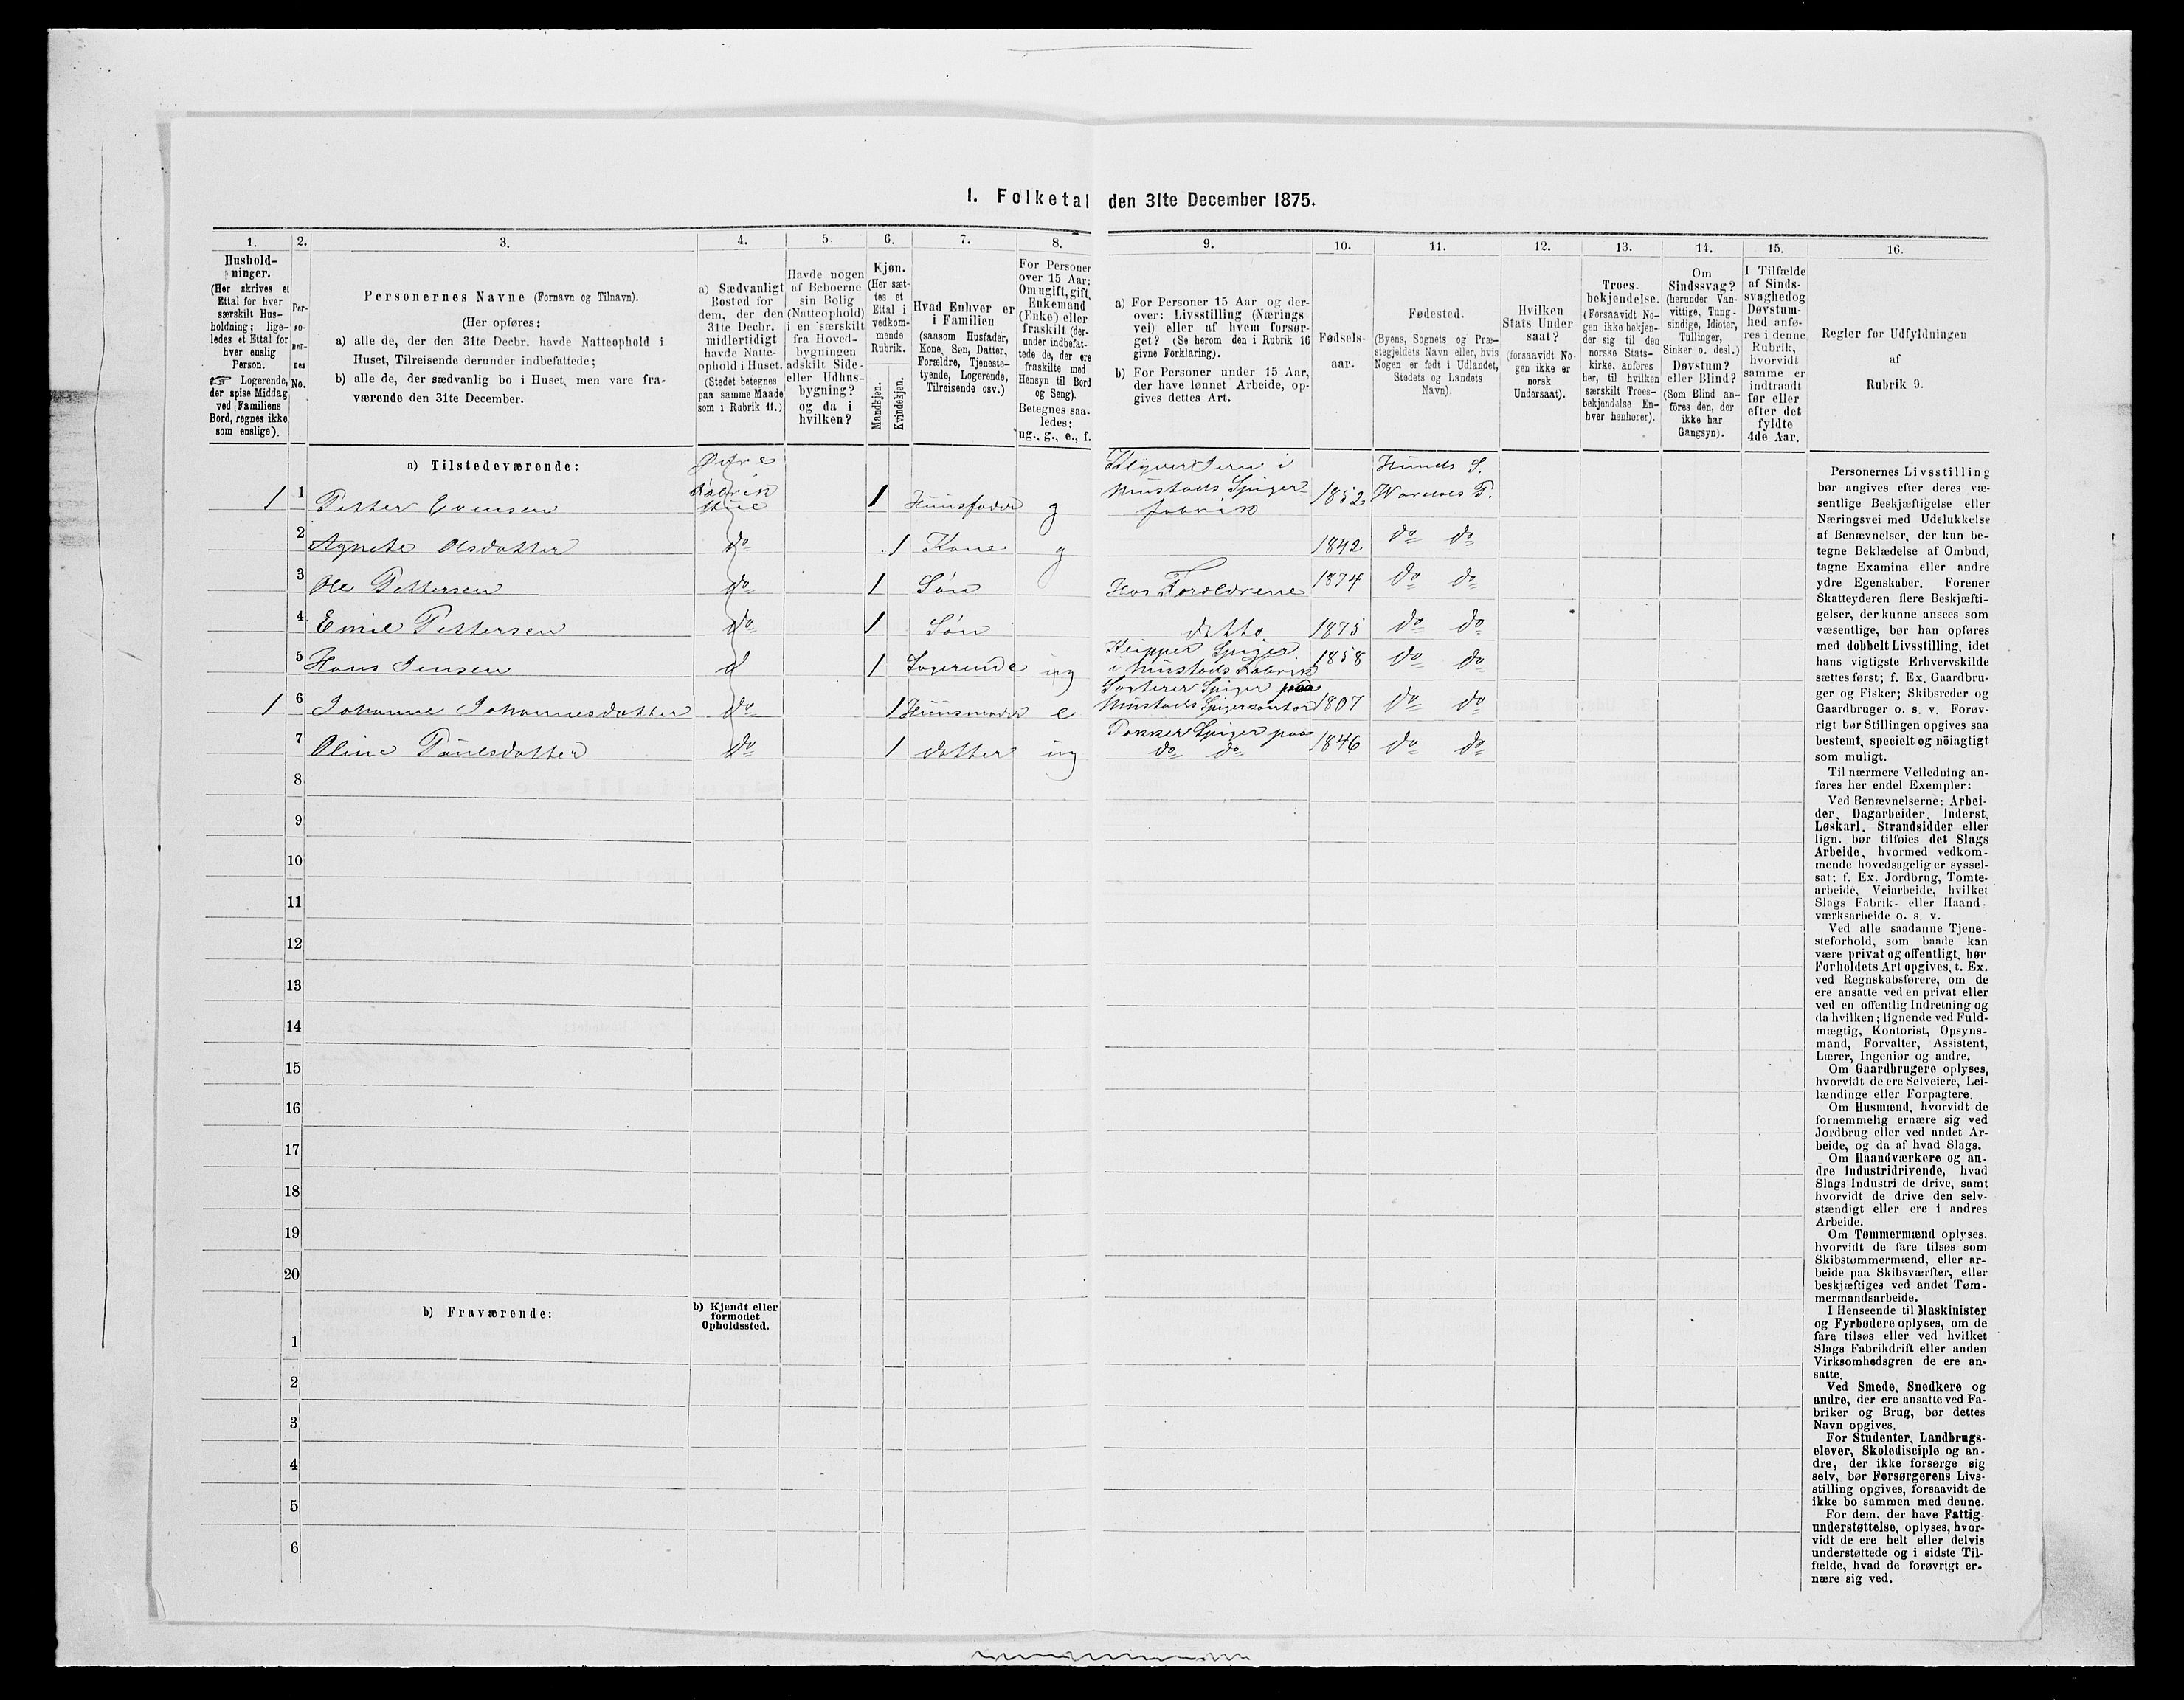 1. Folketal den 31te December 1875.
1. 2. 3. 4. 5. 6. 7. 8. 9. 10. 11. 12. 13. 14. 15. 16.
Hushold-
ninger.
(Her skrives et
Ettal for hver
særskilt Hus-
holdning; lige-
ledes et Ettal for
hver enslig
Person.
☞ Logerende,
der spise Middag
ved Familiens
Bord, regnes ikke
som enslige).
Per-
so-
ner-
nes
No.
Personernes Navne (Fornavn og Tilnavn).
(Her opføres:
a) alle de, der den 31te Decbr. havde Natteophold i
Huset, Tilreisende derunder indbefattede;
b) alle de, der sædvanlig bo i Huset, men vare fra-
værende den 31te December.
a) Sædvanligt
Bosted for
dem, der den
31te Decbr.
midlertidigt
havde Natte-
ophold i Huset.
(Stedet betegnes
paa samme Maade
som i Rubrik 11.)
Havde nogen
af Beboerne
sin Bolig
(Natteophold)
i en særskilt
fra Hoved-
bygningen
adskilt Side-
eller Udhus-
bygning?
og da i
hvilken?
Kjøn.
(Her sæt-
tes et
Ettal i
vedkom-
mende
Rubrik.
Mandkjøn.
Kvindekjøn.
Hvad Enhver er
i Familien
(saasom Husfader,
Kone, Søn, Datter,
Forældre, Tjeneste-
tyende, Logerende,
Tilreisende osv.)
For Personer
over 15 Aar:
Om ugift, gift,
Enkemand
(Enke) eller
fraskilt (der-
under indbefat-
tede de, der ere
fraskilte med
Hensyn til Bord
og Seng).
Betegnes saa-
ledes:
ug., g., e., f.
a) For Personer 15 Aar og der-
over: Livsstilling (Nærings
vei) eller af hvem forsør-
get? (Se herom den i Rubrik 16
givne Forklaring).
b) For Personer under 15 Aar,
der have lønnet Arbeide, op-
gives dettes Art.
Fødsels-
aar.
Fødested.
(Byens, Sognets og Præ-
stegjeldets Navn eller, hvis
Nogen er født i Udlandet,
Stedets og Landets
Navn).
Hvilken
Stats Under
saat?
(forsaavidt No-
gen ikke er
norsk
Undersaat).
Troes-
bekjendelse.
(Forsaavidt No-
gen ikke bekjen-
der sig til den
norske Stats-
kirke, anføres
her, til hvilken
særskilt Troes-
bekjendelse En-
hver henhører).
Om
Sindssvag?
(herunder Van-
vittige, Tung-
sindige, Idioter,
Tullinger,
Sinker o. desl.)
Døvstum?
eller Blind?
(Som Blind an-
føres den, der
ikke har
Gangsyn).
I Tilfælde
af Sinds-
svaghed og
Døvstum-
hed anfø-
res i denne
Rubrik,
hvorvidt
samme er
indtraadt
før eller
efter det
fyldte
4de Aar.
Regler for Udfyldningen
af
Rubrik 9.
a) Tilstedeværende:
1 1 Petter Evensen Øvre Fabrik Stue 1 Huusfader g Klyver Jern i Mustads Spiger-fabrik 1852 Hunds S. Wardals P.
2 Agnete Olsdatter do 1 Kone g 1842 do do
3 Ole Pettersen do 1 Søn Hos Forældrene 1874 do do
4 Emil Pettersen do 1 Søn ditto 1875 do do
5 Hans Jensen d 1 Logerende ug Klipper Spiger i Mustads Fabrik 1858 do do
1 6 Johanne Johannesdatter do 1 Huusmoder e Sorterer Spiger paa Mustads Spigerkontor 1807 do do
7 Oline Poulsdatter do 1 datter ug Pakker Spiger paa do do 1846 do do
8
9
10
11
12
13
14
15
16
17
18
19
20
b) Fraværende:
b) Kjendt eller
formodet
Opholdssted.
1
2
3
4
5
6
Personernes Livsstilling
bør angives efter deres væ-
sentlige Beskjæftigelse eller
Næringsvei med Udelukkelse
af Benævnelser, der kun be-
tegne Beklædelse af Ombud,
tagne Examina eller andre
ydre Egenskaber. Forener
Skatteyderen flere Beskjæfti-
gelser, der kunne ansees som
væsentlige, bør han opføres
med dobbelt Livsstilling, idet
hans vigtigste Erhvervskilde
sættes først; f. Ex. Gaardbru-
ger og Fisker; Skibsreder og
Gaardbruger o. s. v. Forøv-
rigt bør Stillingen opgives saa
bestemt, specielt og nöiagtigt
som muligt.
Til nærmere Veiledning an-
føres her endel Exempler:
Ved Benævnelserne: Arbei-
der, Dagarbeider, Inderst,
Løskarl, Strandsidder eller
lign. bør tilføies det Slags
Arbeide, hvormed vedkom-
mende hovedsagelig er syssel-
sat; f. Ex. Jordbrug, Tomte-
arbeide, Veiarbeide, hvilket
Slags Fabrik- eller Haand-
værksarbeide o. s. v.
Ved alle saadanne Tjene-
steforhold, som baade kan
være privat og offentligt, bør
Forholdets Art opgives, t. Ex.
ved Regnskabsførere, om de
ere ansatte ved en privat eller
ved en offentlig Indretning og
da hvilken; lignende ved Fuld-
mægtig, Kontorist, Opsyns-
mand, Forvalter, Assistent,
Lærer, Ingeniør og andre.
Om Gaardbrugere oplyses,
hvorvidt de ere Selveiere, Lei-
lændinge eller Forpagtere.
Om Husmænd, hvorvidt de
fornemmelig ernære sig ved
Jordbrug eller ved andet Ar-
beide, og da af hvad Slags.
Om Haandværkere og an-
dre Industridrivende, hvad
Slags Industri de drive, samt
hvorvidt de drive den selv-
stændigt eller ere i andres
Arbeide.
Om Tømmermænd oplyses,
hvorvidt de fare tilsøs som
Skibstømmermænd, eller ar-
beide paa Skibsværfter, eller
beskjæftiges ved andet Tøm-
mermandsarbeide.
I Henseende til Maskinister
og Fyrbødere oplyses, om de
fare tilsøs eller ved hvilket
Slags Fabrikdrift eller anden
Virksomhedsgren de ere an-
satte.
Ved Smede, Snedkere og
andre, der ere ansatte ved Fa-
briker og Brug, bør dettes
Navn opgives.
For Studenter, Landbrugs-
elever, Skoledisciple og an-
dre, der ikke forsørge sig
selv, bør Forsørgerens Livs-
stilling opgives, forsaavidt de
ikke bo sammen med denne.
For dem, der have Fattig-
understøttelse, oplyses, hvor-
vidt de ere helt eller delvis
understøttede og i sidste Til-
fælde, hvad de forøvrigt er-
nære sig ved.